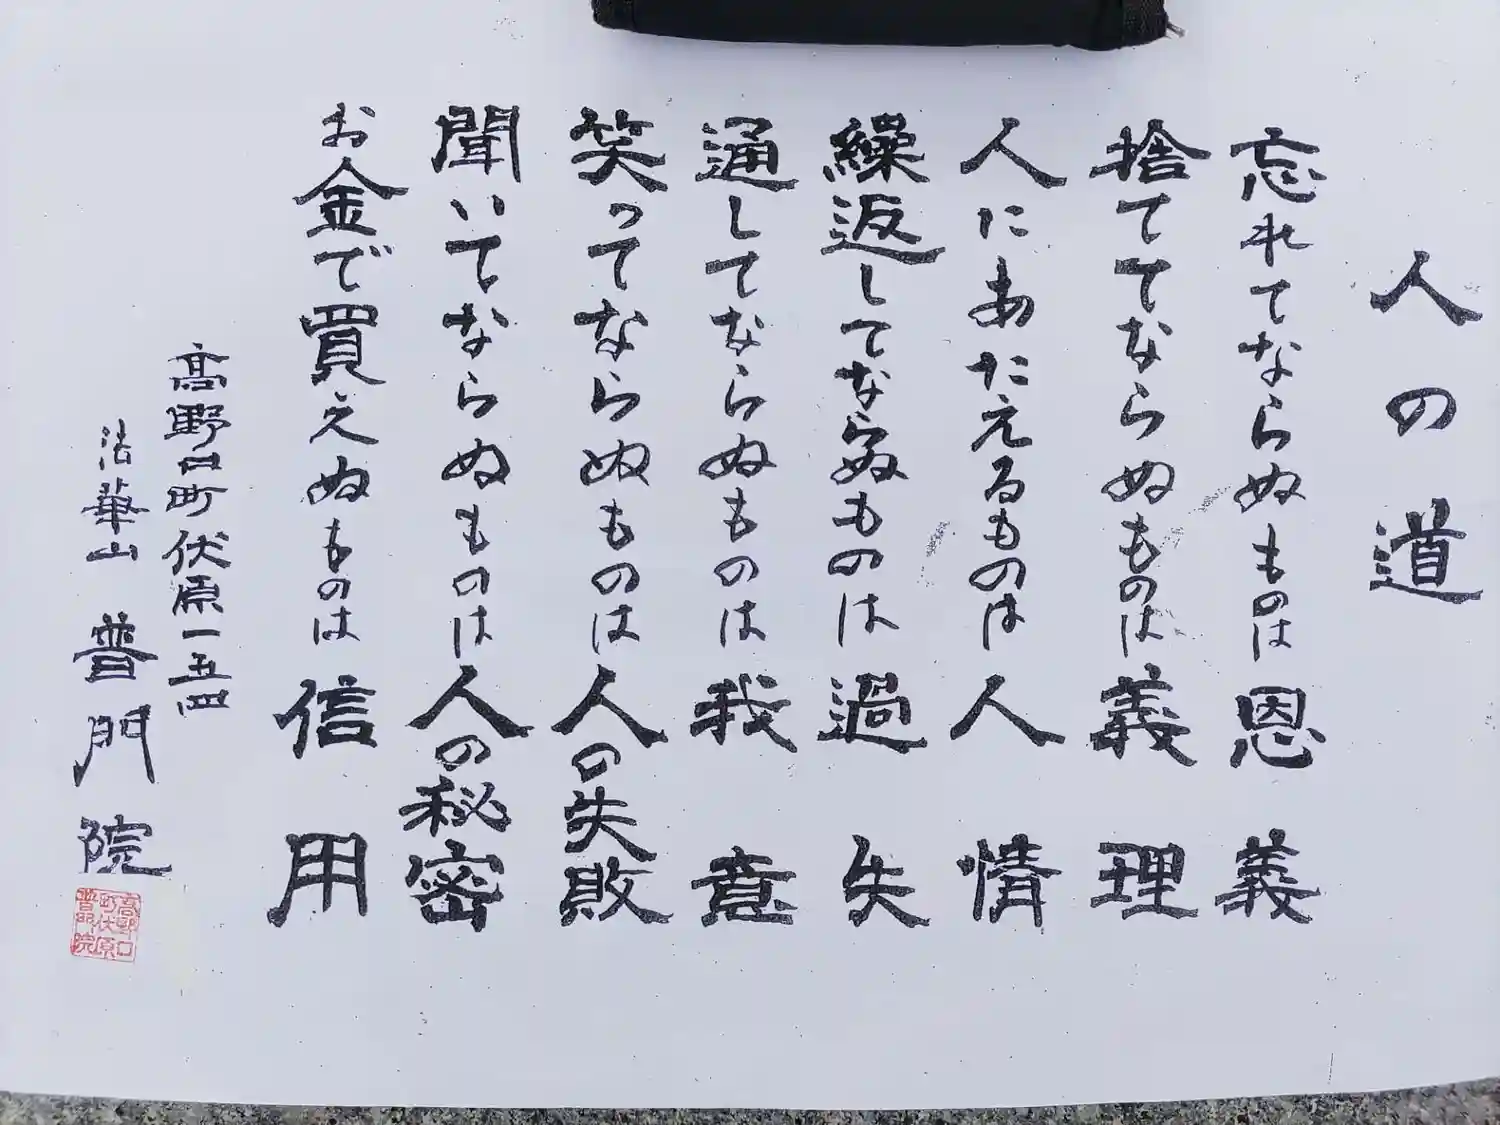 人の道
忘れてならぬものは恩義
捨ててならぬものは義理
人にあたえるものは人情
繰返してならぬものは過失
通してならぬものは我意
笑ってならぬものは人の失敗
聞いてならぬものは人の秘密
お金で買えぬものは信用
高野口町伏原一五四
法華山 普門院
高野口
町伏原
普門院